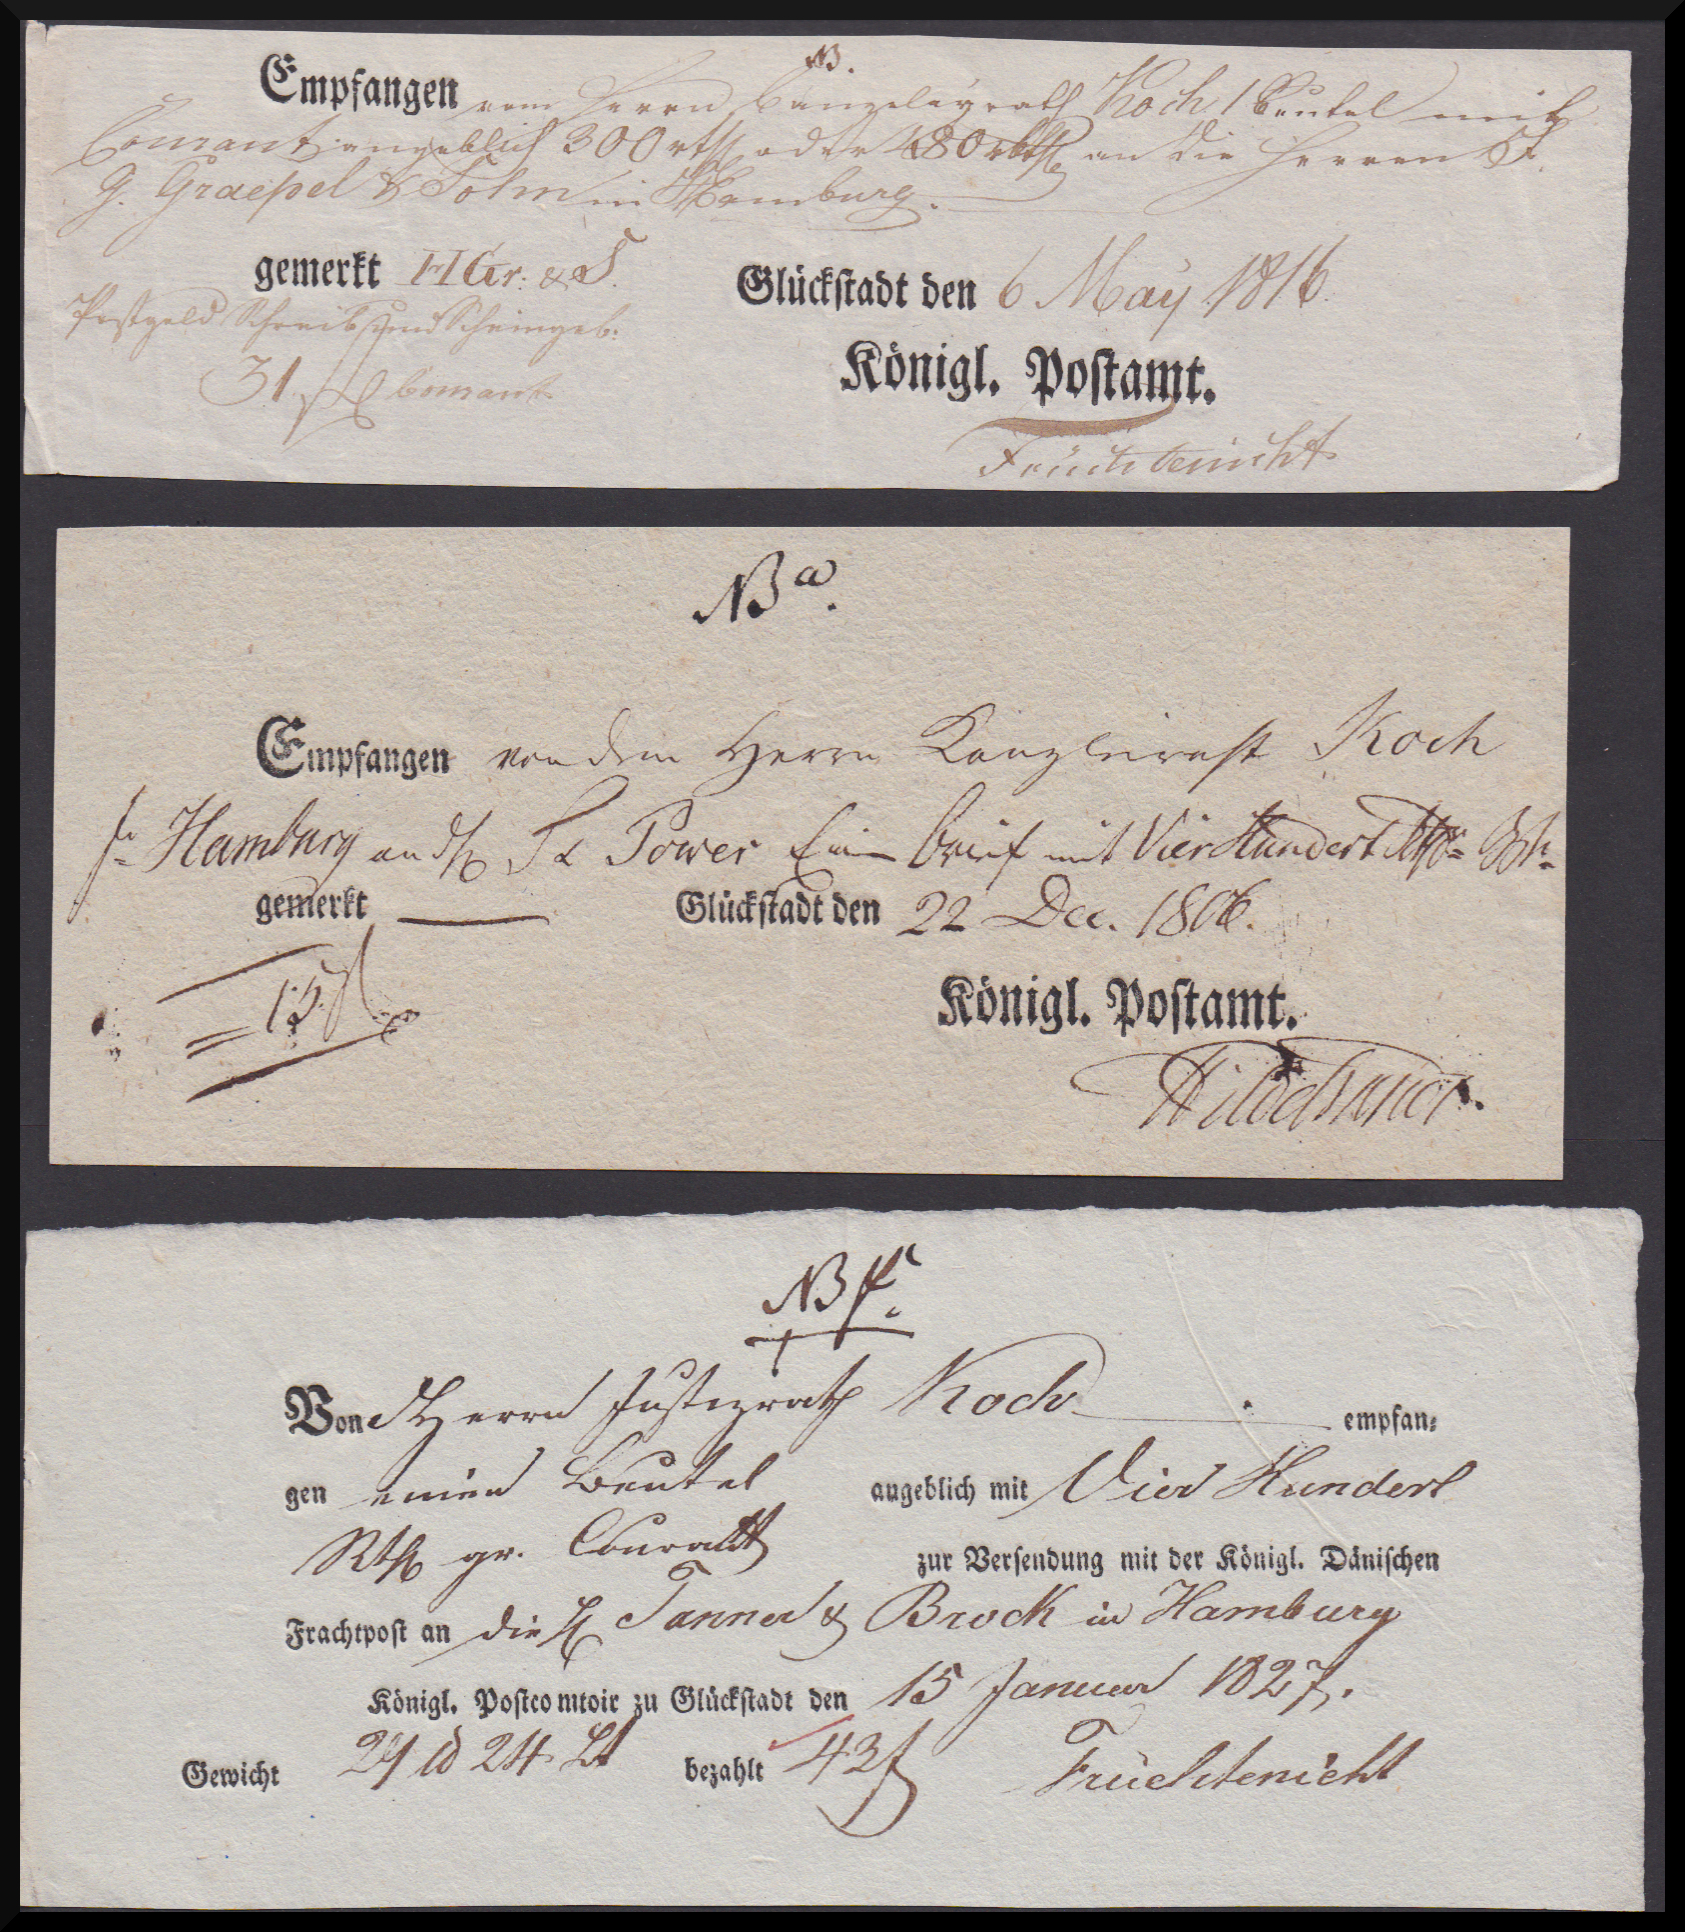 NB.
Empfangen vom Herrn Canzeleyrath Koch 1 Beutel mit
Courant angeblich 300 rth oder 480 rbth an die Herren
G. Graepel & Sohn in Hamburg.
gemerkt HGr: & S.
Glückſtadt den 6 May 1816.
Postgeld Schreib und Scheingeb:
31 ß Courant
Königl. Poſtamt.
Früchtenicht
NB a.
Empfangen von dem Herrn Kanzleirath Koch
Hamburg an Power Ein Brief mit Vier Hundert
gemerkt
Glückſtadt den 22 Dec. 1806.
15 ß
Königl. Poſtamt.
NB
Von Herrn Justizrath Koch empfan⸗
gen einen Beutel angeblich mit Vier Hundert
Rth gr. Courant zur Verſendung mit der Königl. Däniſchen
Frachtpoſt an die H Tanner & Brock in Hamburg
Königl. Poſtcomtoir zu Glückſtadt den 15 Januar 1827.
Gewicht 24 Lt bezahlt 43 ß Früchtenicht